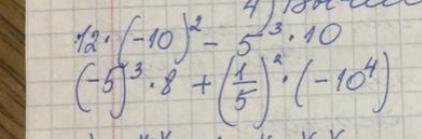 4)
12 · (-10)² - 5³ · 10
(-5)³ · 8 + (1/5)² · (-10⁴)